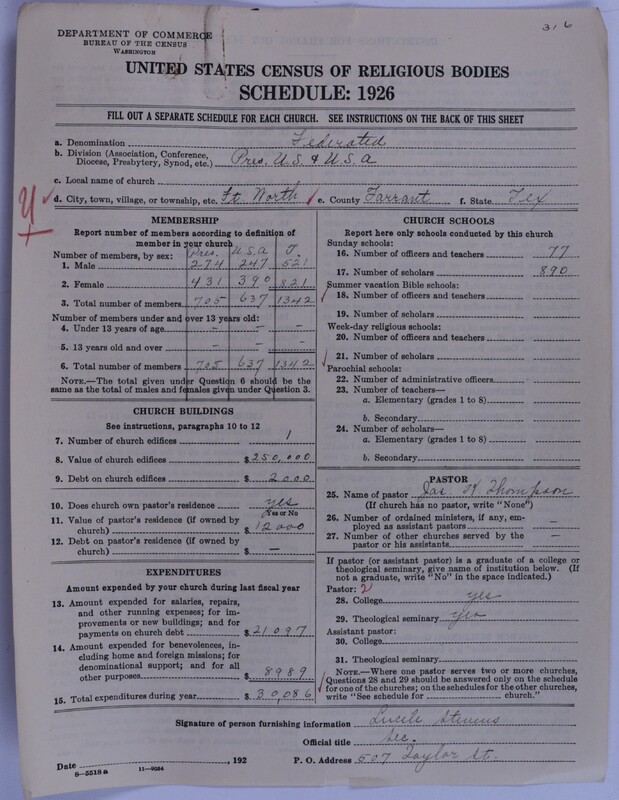 316
DEPARTMENT OF COMMERCE
BUREAU OF THE CENSUS
WASHINGTON
UNITED STATES CENSUS OF RELIGIOUS BODIES
SCHEDULE: 1926
FILL OUT A SEPARATE SCHEDULE FOR EACH CHURCH. SEE INSTRUCTIONS ON THE BACK OF THIS SHEET
a. Denomination Federated
b. Division (Association, Conference, Diocese, Presbytery, Synod, etc.) Pres. U.S. & U.S.A
c. Local name of church
d. City, town, village, or township, etc. Ft. Worth e. County Tarrant f. State Tex
MEMBERSHIP
Report number of members according to definition of
member in your church
Pres. U.S.A T.
Number of members, by sex:
1. Male 274 247 521
2. Female 431 390 821
3. Total number of members 705 637 1342
Number of members under and over 13 years old:
4. Under 13 years of age - - -
5. 13 years old and over - - -
6. Total number of members 705 637 1342
NOTE.—The total given under Question 6 should be the
same as the total of males and females given under Question 3.
CHURCH BUILDINGS
See instructions, paragraphs 10 to 12
7. Number of church edifices 1
8. Value of church edifices $250,000
9. Debt on church edifices $2000
10. Does church own pastor's residence yes
(Yes or No)
11. Value of pastor's residence (if owned by
church) $12000
12. Debt on pastor's residence (if owned by
church) $ —
EXPENDITURES
Amount expended by your church during last fiscal year
13. Amount expended for salaries, repairs,
and other running expenses; for im-
provements or new buildings; and for
payments on church debt $21097
14. Amount expended for benevolences, in-
cluding home and foreign missions; for
denominational support; and for all
other purposes $8989
15. Total expenditures during year $30,086
CHURCH SCHOOLS
Report here only schools conducted by this church
Sunday schools:
16. Number of officers and teachers 77
17. Number of scholars 890
Summer vacation Bible schools:
18. Number of officers and teachers
19. Number of scholars
Week-day religious schools:
20. Number of officers and teachers
21. Number of scholars
Parochial schools:
22. Number of administrative officers
23. Number of teachers—
a. Elementary (grades 1 to 8)
b. Secondary
24. Number of scholars—
a. Elementary (grades 1 to 8)
b. Secondary
PASTOR
25. Name of pastor Jas. K Thompson
(If church has no pastor, write "None")
26. Number of ordained ministers, if any, em-
ployed as assistant pastors —
27. Number of other churches served by the
pastor or his assistants —
If pastor (or assistant pastor) is a graduate of a college or
theological seminary, give name of institution below. (If
not a graduate, write "No" in the space indicated.)
Pastor: 2
28. College yes
29. Theological seminary yes
Assistant pastor:
30. College
31. Theological seminary
NOTE.—Where one pastor serves two or more churches,
Questions 28 and 29 should be answered only on the schedule
for one of the churches; on the schedules for the other churches,
write "See schedule for church."
Signature of person furnishing information Lucile Stevens
Official title Sec.
Date , 192 P. O. Address 507 Taylor St.
8—5518 a 11—9034